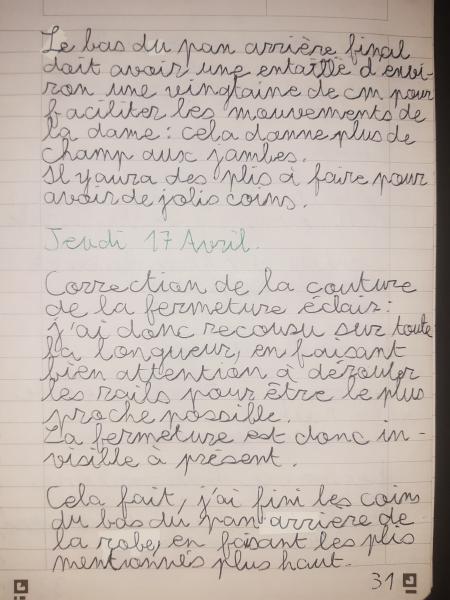 Le bas du pan arrière final
doit avoir une entaille d'envi-
ron une vingtaine de cm pour
faciliter les mouvements de
la dame : cela donne plus de
champ aux jambes.
Il y aura des plis à faire pour
avoir de jolis coins.
Jeudi 17 Avril.
Correction de la couture
de la fermeture éclair :
j'ai donc recousu sur toute
la longueur, en faisant
bien attention à dérouler
les rails pour être le plus
proche possible.
La fermeture est donc in-
visible à présent.
Cela fait, j'ai fini les coins
du bas du pan arrière de
la robe, en faisant les plis
mentionnés plus haut.
31